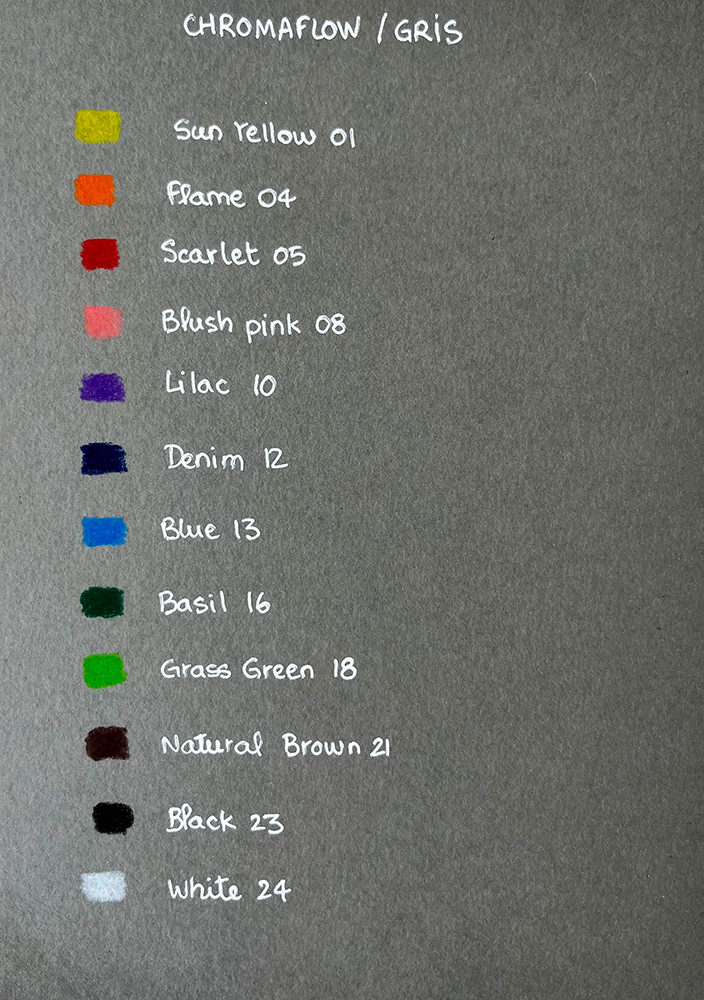 CHROMAFLOW / GRIS
Sun Yellow 01
Flame 04
Scarlet 05
Blush pink 08
Lilac 10
Denim 12
Blue 13
Basil 16
Grass Green 18
Natural Brown 21
Black 23
White 24